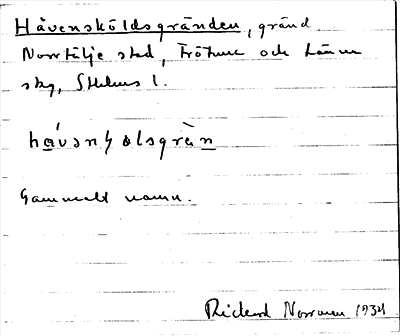 Håvensköldsgränden, gränd
Norrtälje stad, Frötuna och Länna
skg, Sthlms l.
Gammalt namn.
Rickard Norman 1934